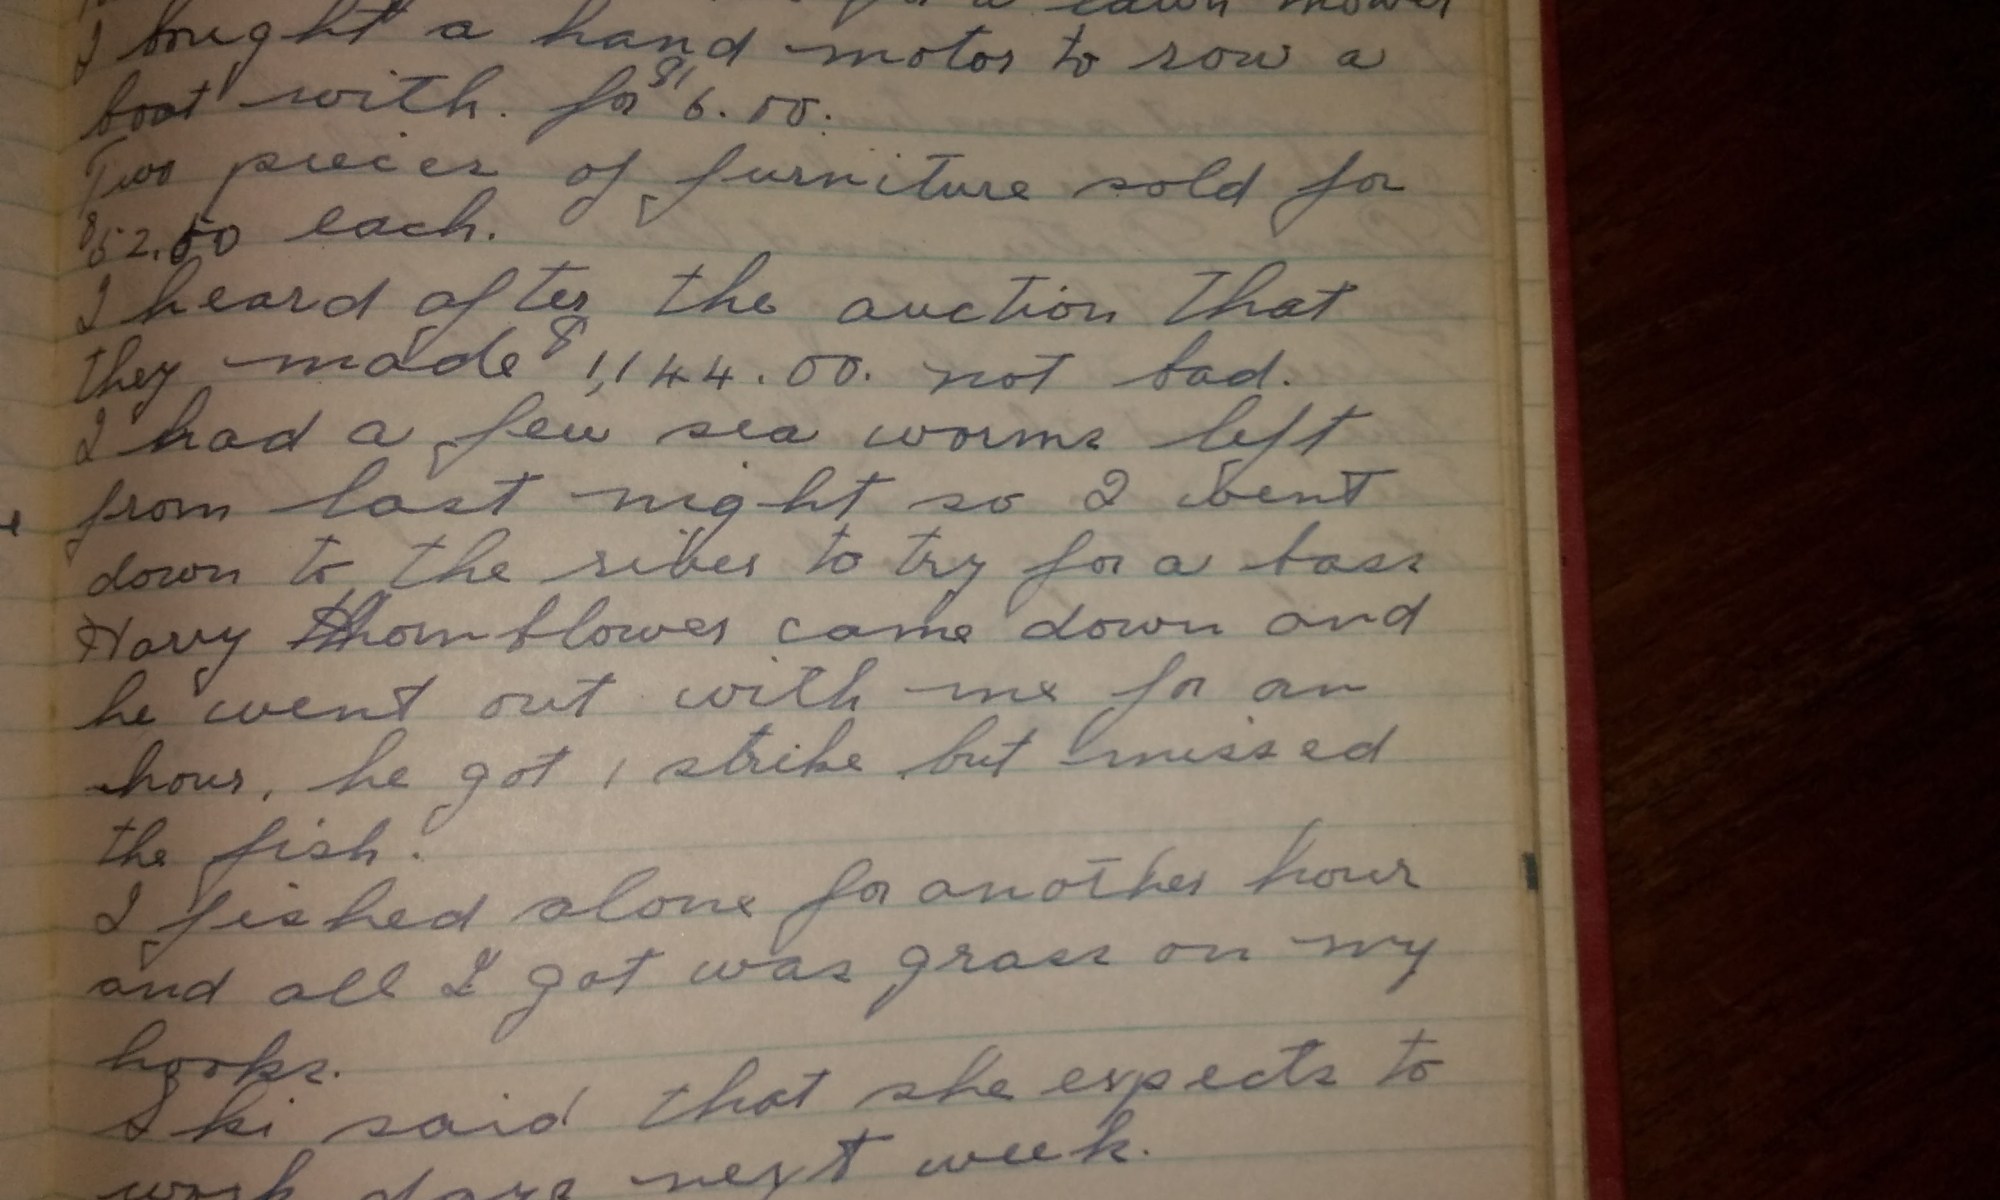 a lawn mower
I bought a hand motor to row a
boat with. for $16.00.
Two pieces of furniture sold for
$52.50 each.
I heard after the auction that
they made $1,144.00. not bad.
I had a few sea worms left
from last night so I went
down to the river to try for a bass
Harry Thornblower came down and
he went out with me for an
hour, he got 1 strike but missed
the fish.
I fished alone for another hour
and all I got was grass on my
hooks.
Ski said that she expects to
work days next week.